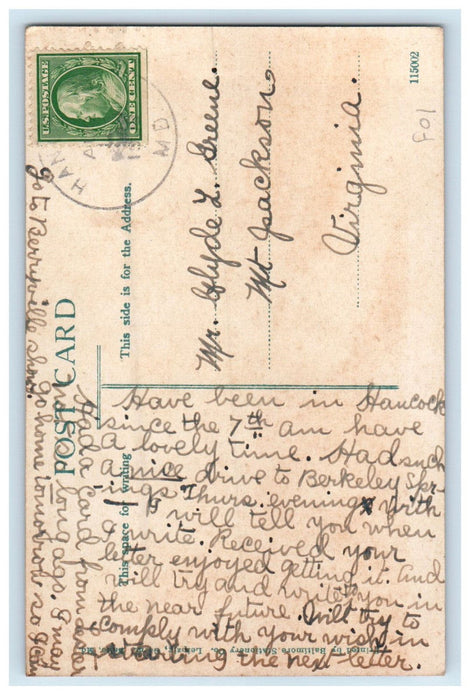 115002
F01
POST CARD
This side is for the Address.
This space for writing
U.S. POSTAGE
ONE CENT
HAN
MD.
Mr. Clyde L. Greene.
Mt Jackson.
Virginia.
Have been in Hancock
since the 7th am have
a lovely time. Had such
a nice drive to Berkeley Spr-
ings Thurs. evening with
will tell you when
I write. Received your
letter enjoyed getting it. And
will try and write you in
the near future. Will try to
comply with your wish in
the next letter.
Had a card from
long ago. I may
go to Berryville show.
go home tomorrow so
Printed by Baltimore Stationery Co. Leipzig,